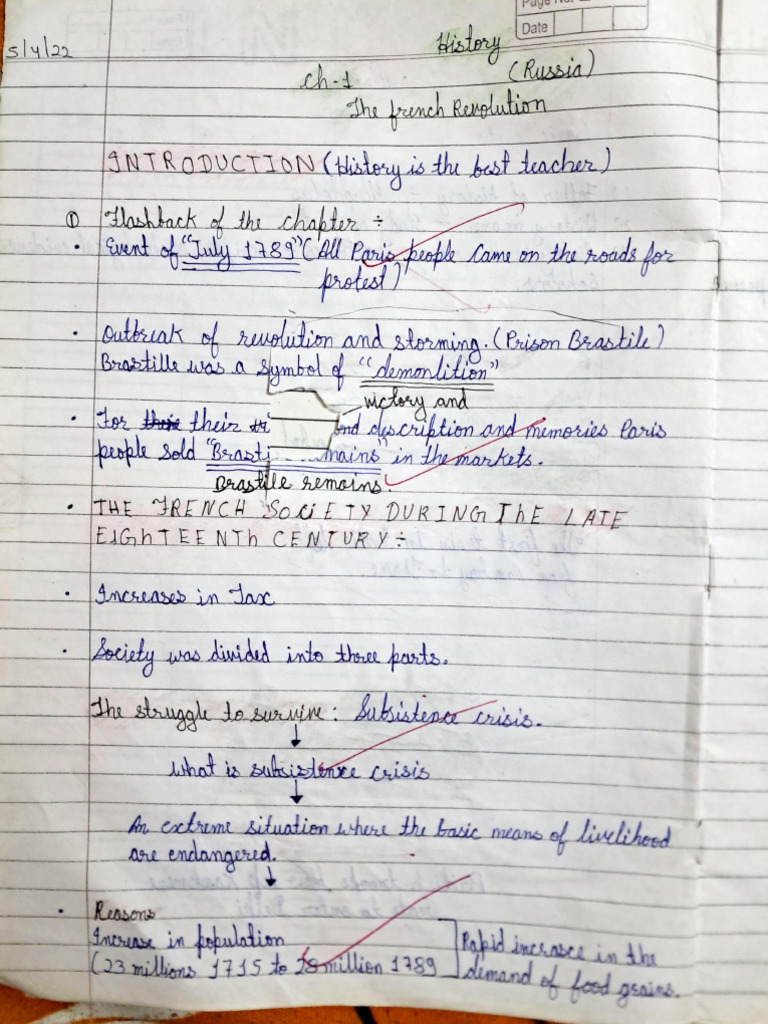 Page No.
Date
5/4/22
History
(Russia)
Ch-1
The french Revolution
INTRODUCTION (History is the best teacher)
① Flashback of the chapter ÷
• Event of "July 1789" (All Paris people Came on the roads for
protest)
• Outbreak of revolution and storming. (Prison Brastile)
Brastille was a symbol of "demonlition"
victory and
• For their their tri nd description and memories Paris
people sold "Brasti mains" in the markets.
Brastile remains.
• THE FRENCH SOCIETY DURING THE LATE
EIGHTEENTH CENTURY ÷
• Increases in Tax
• Society was divided into three parts.
The struggle to survive : Subsistence crisis.
↓
What is subsistence crisis
↓
An extreme situation where the basic means of livelihood
are endangered.
↓
• Reasons
Increase in population
(23 millions 1715 to 28 million 1789
Rapid increase in the
demand of food grains.